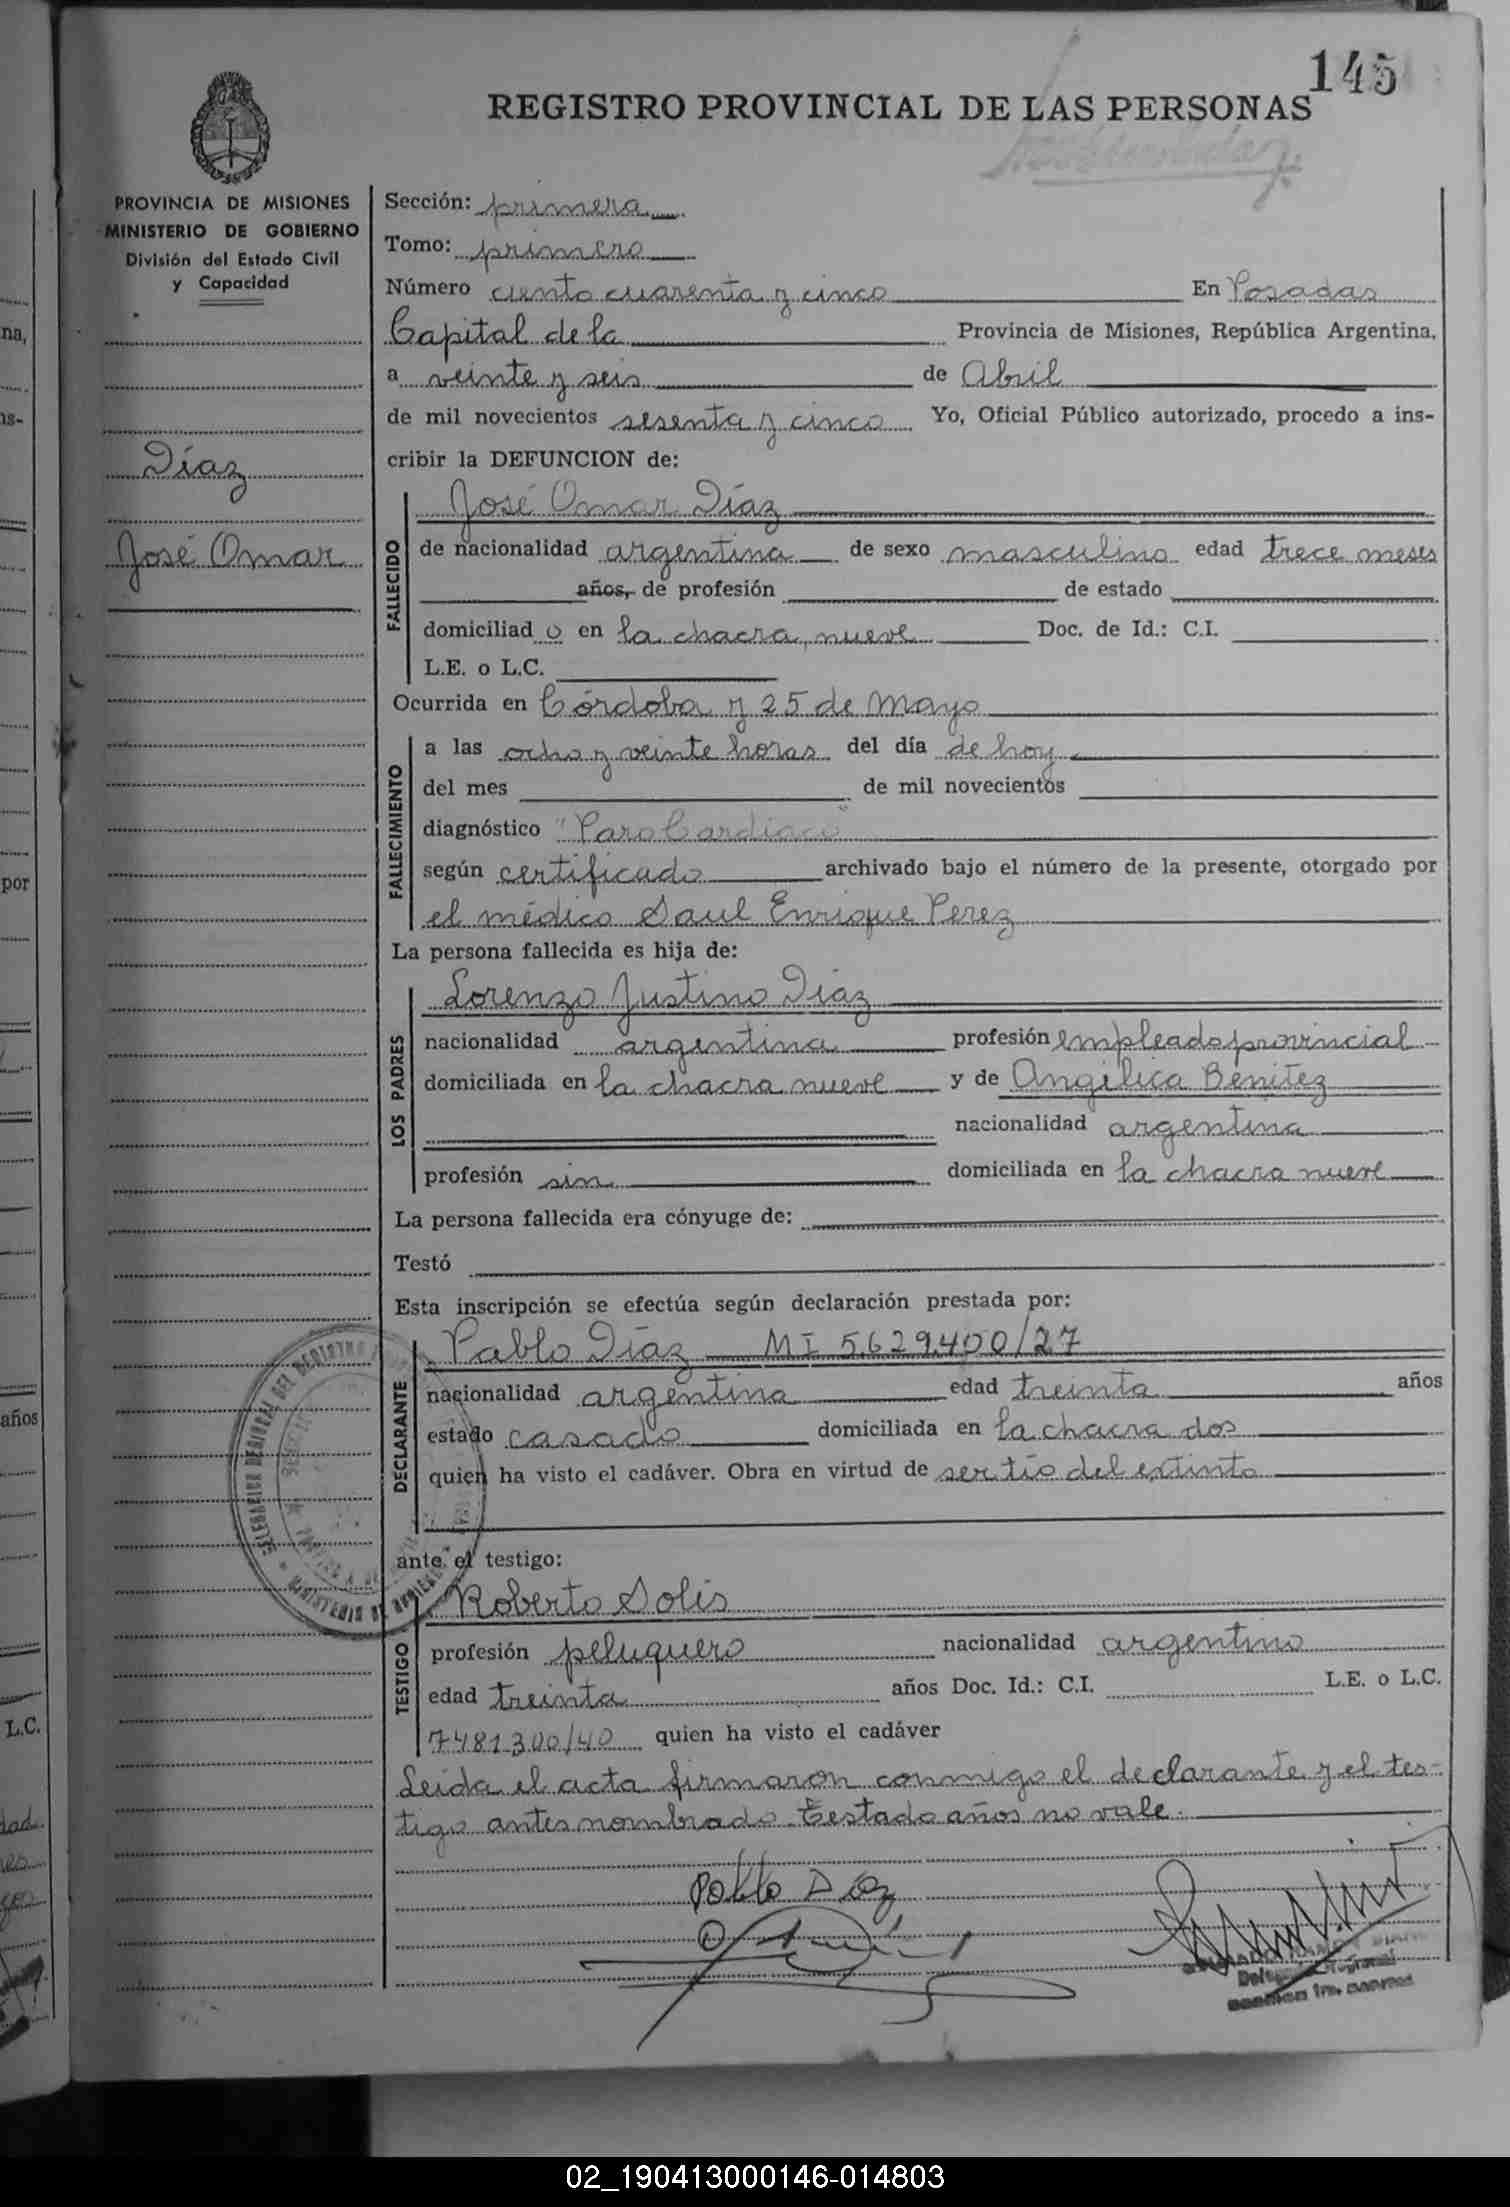 145
REGISTRO PROVINCIAL DE LAS PERSONAS
PROVINCIA DE MISIONES
MINISTERIO DE GOBIERNO
División del Estado Civil
y Capacidad
Díaz
José Omar
Sección: primera
Tomo: primero
Número ciento cuarenta y cinco En Posadas
Capital de la Provincia de Misiones, República Argentina,
a veinte y seis de Abril
de mil novecientos sesenta y cinco Yo, Oficial Público autorizado, procedo a ins-
cribir la DEFUNCION de:
FALLECIDO
José Omar Díaz
de nacionalidad argentina de sexo masculino edad trece meses
años, de profesión de estado
domiciliad o en la chacra nueve Doc. de Id.: C.I.
L.E. o L.C.
Ocurrida en Córdoba y 25 de Mayo
FALLECIMIENTO
a las ocho y veinte horas del día de hoy
del mes de mil novecientos
diagnóstico "Paro Cardíaco"
según certificado archivado bajo el número de la presente, otorgado por
el médico Saul Enrique Perez
La persona fallecida es hija de:
LOS PADRES
Lorenzo Justino Díaz
nacionalidad argentina profesión empleado provincial
domiciliada en la chacra nueve y de Angélica Benítez
nacionalidad argentina
profesión sin domiciliada en la chacra nueve
La persona fallecida era cónyuge de:
Testó
Esta inscripción se efectúa según declaración prestada por:
DECLARANTE
Pablo Díaz MI 5.629.400/27
nacionalidad argentina edad treinta años
estado casado domiciliada en la chacra dos
quien ha visto el cadáver. Obra en virtud de ser tío del extinto
ante el testigo:
TESTIGO
Roberto Solis
profesión peluquero nacionalidad argentino
edad treinta años Doc. Id.: C.I. L.E. o L.C.
7481300/40 quien ha visto el cadáver
Leída el acta firmaron conmigo el declarante y el tes-
tigo antes nombrado. Testado años no vale.
Pablo Díaz
02_190413000146-014803